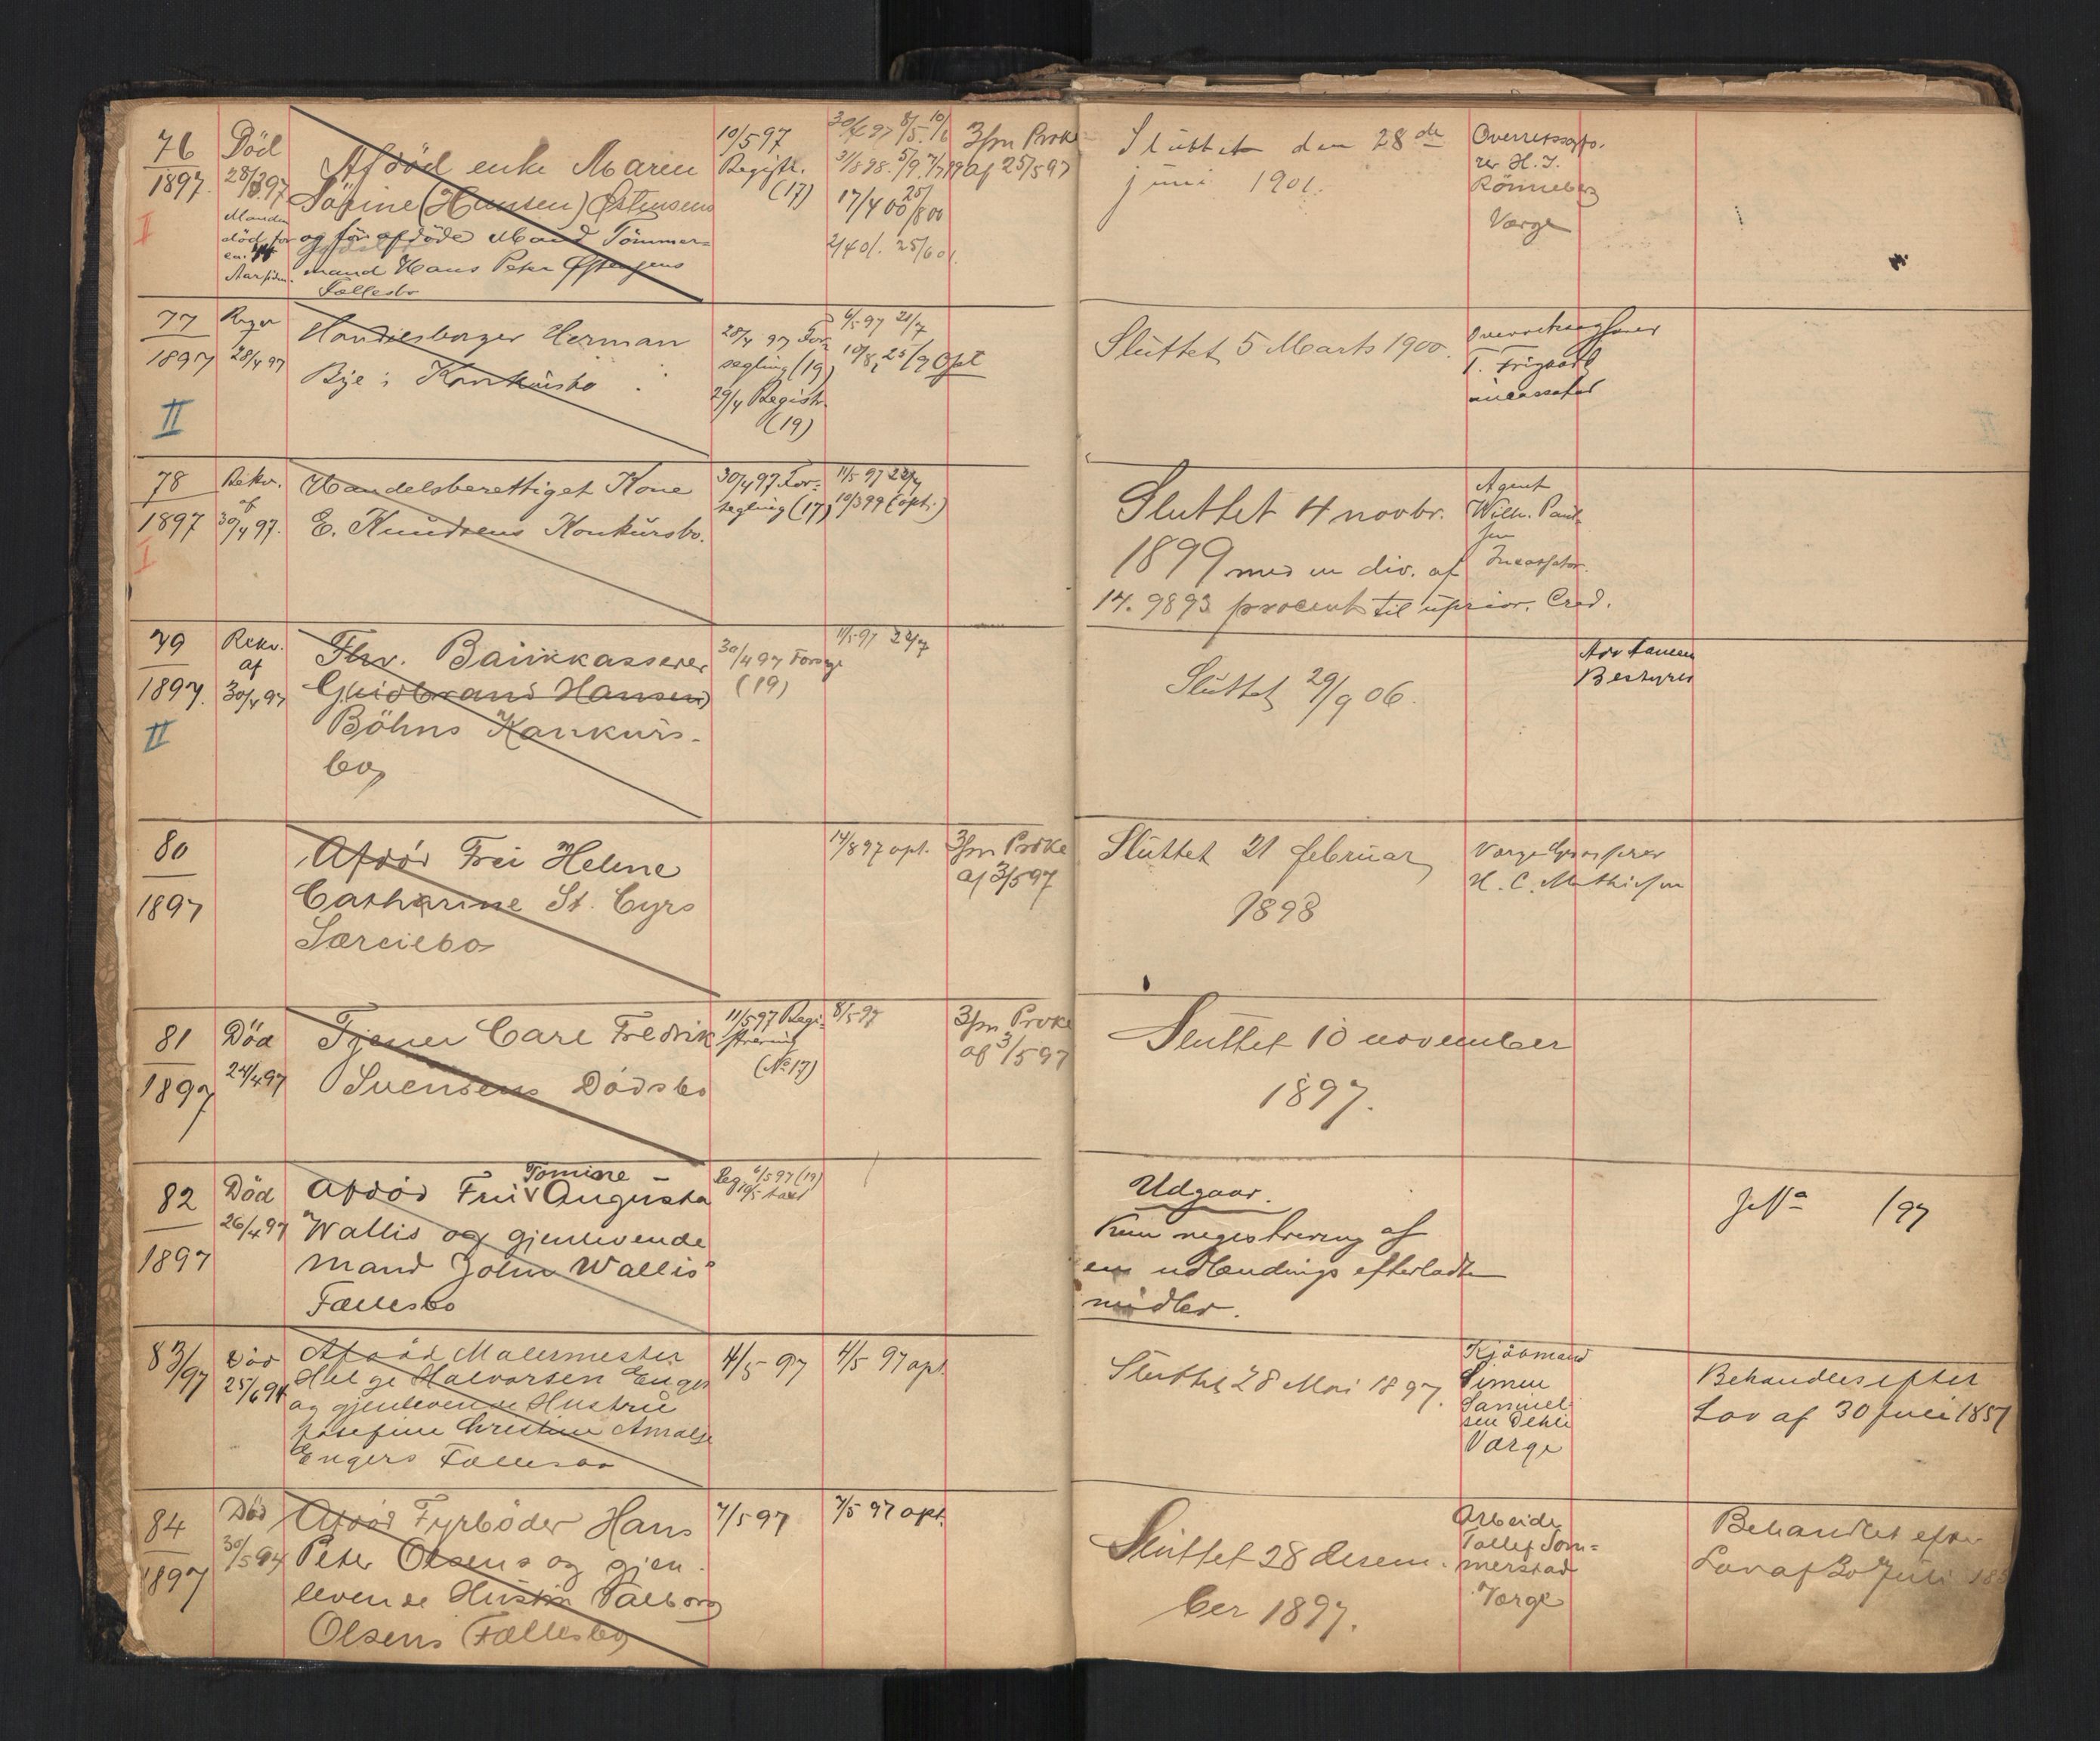 76
1897.
I
Död
28/3 97
Manden
död for
Aar siden.
Afdöd enke Maren
Sörine (Hansen) Östensens
og før afdöde Mand Tömmer-
mand Hans Peter Östensens
Fællesbo
10/5 97
Registr.
(17)
17/4 00 25/8 00
2/4 01. 25/6 01.
3/m Prokl
af 25/5 97
Sluttet den 28de
juni 1901.
Overretssagfö-
rer H. J.
Rönneberg
Værge
77
1897
II
28/4 97
Handelsborger Herman
Bye's Konkursbo
28/4 97 For-
segling (19)
29/4 Registr.
(19)
6/5 97 21/7
10/8, 25/9 Opt
Sluttet 5 Marts 1900.
Overretssagförer
78
1897
I
Rekv.
af
30/4 97.
Handelsberettiget Kone
E. Knudsens Konkursbo.
30/4 97 For-
segling (17)
11/5 97 22/7
10/3 99 (opt.)
Sluttet 4 novbr.
1899 med en div. af
14.9893 procent til uprior. Cred.
Agent
Wilh. Paul-
sen
Incassator.
79
1897.
II
Rekv.
af
30/4 97
Fhv. Bankkasserer
Gudbrand Hansen
Böhns Konkurs-
bo,
30/4 97 Forsegl
(19)
11/5 97 22/7
Sluttet 29/9 06.
Bestyrer
80
1897
Afdöd Frü Helene
Catharine St. Cyrs
Særeiebo
14/8 97 opt.
3/m Prokl
af 3/5 97
Sluttet 21 februar
1898
Værge Grosserer
H. C. Mathiesen
81
1897
Död
24/4 97
Tjener Carl Fredrik
Svensens Dödsbo
11/5 97 Regi-
strering
(No 17)
8/5 97
3/m Prokl
af 3/5 97
Sluttet 10 november
1897.
82
1897
Död
26/4 97
Tomine
Afdöd Frü Augusta
Wallis og gjenlevende
Mand John Wallis'
Fællesbo
Reg 6/5 97 (19)
10/5 taxt
Udgaar.
Kun registrering af
en udlændings efterladte
midler.
/97
83/97
Död
25/6 94
Afdöd Malermester
Helge Halvorsen Enger
og gjenlevende Hustrü
Josefine Christine Amalie
Engers Fællesbo
4/5 97
4/5 97 opt.
Sluttet 28 Mai 1897.
Kjöbmand
Simen
Samuel-
sen Dehli
Værge
Behandles efter
Lov af 30 Juli 1857
84
1897
Död
30/5 94
Afdöd Fyrböder Hans
Peter Olsens og gjen-
levende Hustru Valborg
Olsens Fællesbo
7/5 97
7/5 97 opt.
Sluttet 28 desem-
ber 1897.
Arbeider
Tollef Som-
merstad
Værge
Behandlet efter
Lov af 30 Juli 185